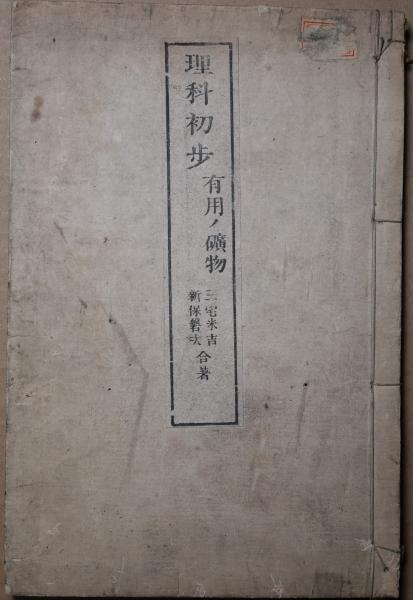 理科初步
有用ノ礦物
三宅米吉
新保磐次
合著